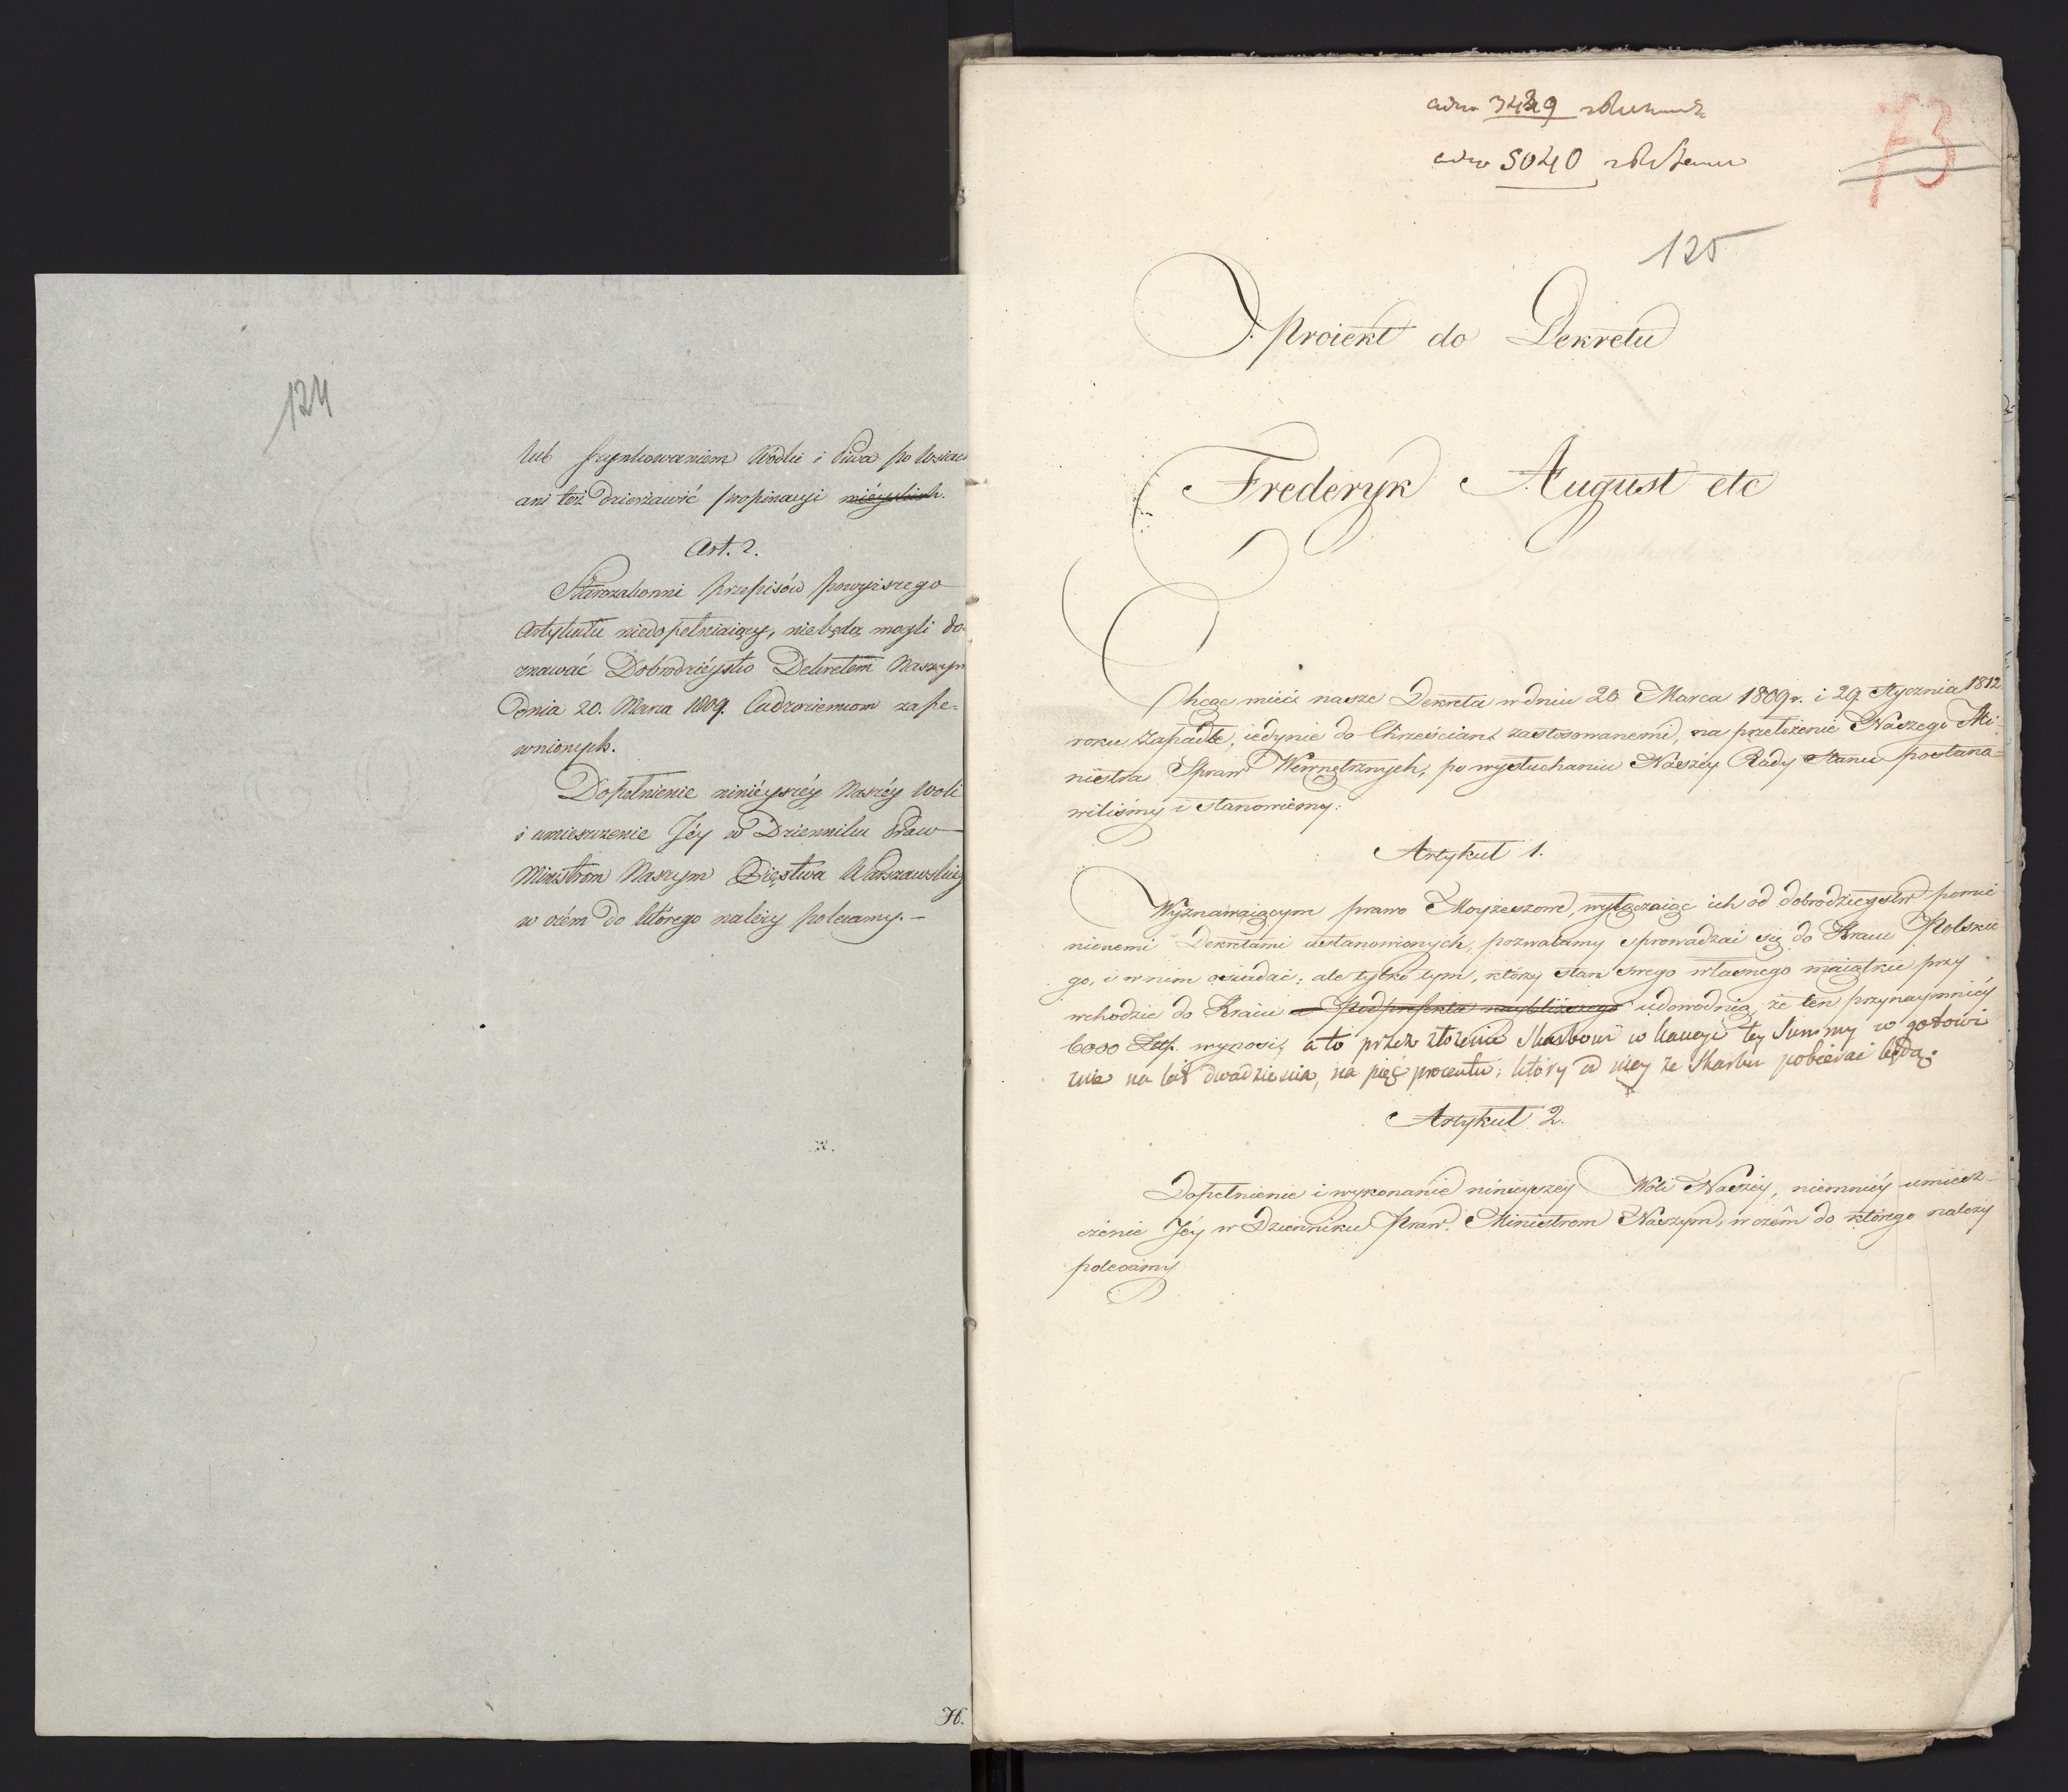 124
lub szynkowaniem Wódki i Piwa po wsiach
ani też dzierżawić propinacyi mieyskich.
Art. 2.
Starozakonni przepisów powyższego
Artykułu niedopełniaiący, niebędą mogli do-
znawać Dobrodzieystw Dekretem Naszym
dnia 20. Marca 1809. Cudzoziemcom zape-
wnionych.
Dopełnienie ninieyszéy Naszéy Woli
i umieszczenie Jéy w Dzienniku Praw
Ministrom Naszym Xięstwa Warszawskieg
w czém do którego należy polecamy. –
H.
73
3429
5040
125
Proiekt do Dekretu
Frederyk August etc
Chcąc mieć nasze Dekreta w dniu 20 Marca 1809 r. i 29 Stycznia 1812
roku zapadłe, iedynie do Chrześcian zastosowanemi, na przełożenie Naszego Mi-
nistra Spraw Wewnętrznych, po wysłuchaniu Naszéy Rady Stanu postana-
wiliśmy i stanowiemy:
Artykuł 1.
Wyznawaiącym prawo Moyżeszowe, wyłączaiąc ich od dobrodzieystw pomie-
nionemi Dekretami ustanowionych, pozwalamy sprowadzać się do Kraiu Polskie-
go, i w nim osiadać; ale tylko tym, którzy stan swego własnego maiątku przy
wchodzie do Kraiu u Podprefekta naybliższego udowodnią, że ten przynaymniéy
6000 Złp. wynosi, a to przez złożenie Skarbowi w kaucyi tey Summy w gotowi
znie na lat dwadzieścia, na pięć procentu, który od niey ze Skarbu pobierać będą.
Artykuł 2.
Dopełnienie i wykonanie ninieyszéy Woli Naszéy, niemniéy umiesz-
czenie Jéy w Dzienniku Praw, Ministrom Naszym, w czém do którego należy
polecamy